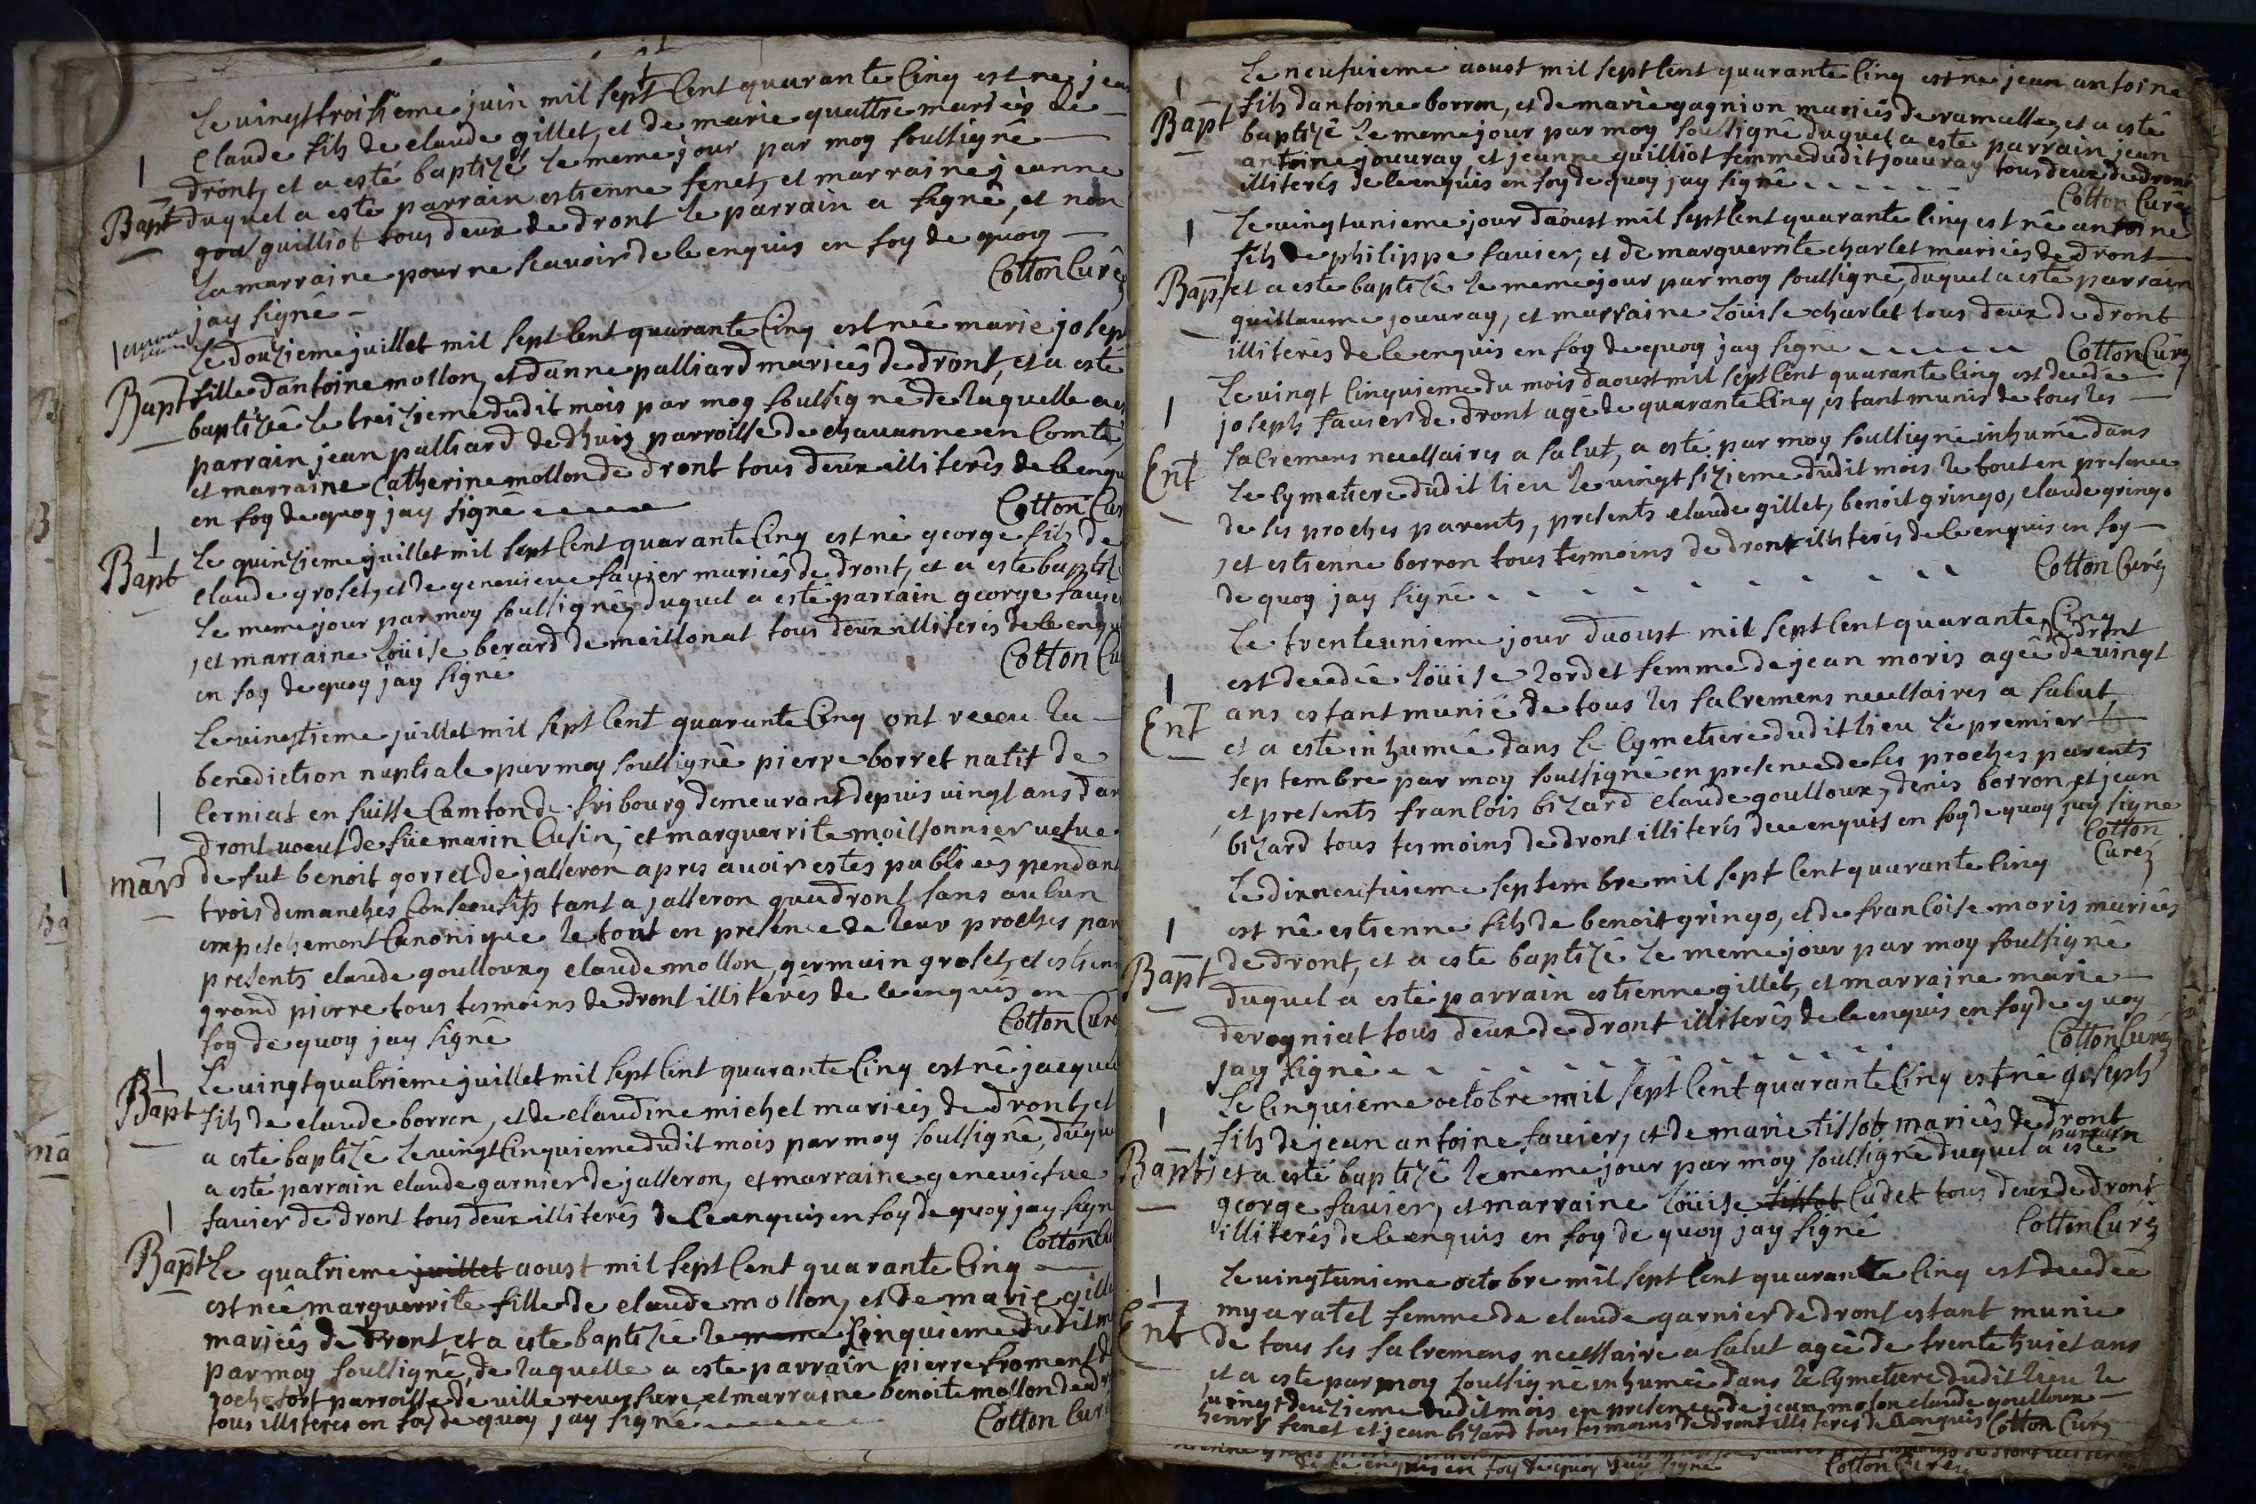 Le vingt troisieme juin mil sept Cent quarante Cinq est ne jean
Claude fils de claude gillet, et de marie quattre mariés de
dront, et a esté baptizé le meme jour par moy soussigné
Bapt duquel a esté parrain estienne fenet, et marraine jeanne
guilliot tous deux de dront le parrain a signé, et non
la marraine pour ne scavoir de ce enquis en foy de quoy
jay signé Cotton Curé
Le douzieme juillet mil sept Cent quarante Cinq est née marie josep
Bapt fille dantoine mollon, et danne palliard mariés de dront, et a esté
baptizée le treizieme dudit mois par moy soussigné de laquelle a es
parrain jean palliard de dhuis parroisse de chavanne en Comté,
et marraine Catherine mollon de dront tous deux illiterés de ce enqu
en foy de quoy jay signé Cotton Cur
Le quinzieme juillet mil sept Cent quarante Cinq est né george fils de
Bapt claude groset, et de genevieve favier mariés de dront, et a esté baptizé
le meme jour par moy soussigné, duquel a esté parrain george favier
, et marraine Loüise berard de meillonat tous deux illiterés de ce enqu
en foy de quoy jay signé Cotton Cu
Le vingtieme juillet mil sept Cent quarante Cinq ont receu la
benediction nuptiale par moy soussigné pierre borret natif de
Cerniat en suisse Camton de fribourg demeurant depuis vingt ans dan
dront voeuf de füe marin Cusin, et marguerrite moissonnier vefue
mar de fut benoit gorret de jasseron apres avoir estés publiées pendant
trois dimanches Consecutifs tant a jasseron qua dront sans aucun
empeschement Canonique le tout en presence de leur proches par
presents claude goulloux, claude mollon, germain groset, et estienne
grand pierre tous tesmoins de dront illiterés de ce enquis en
foy de quoy jay signé Cotton Curé
Le vingt quatrieme juillet mil sept Cent quarante Cinq est né jacque
Bapt fils de claude borron, et de claudine michel mariés de dront, et
a esté baptizé le vingt Cinquieme dudit mois par moy soussigné, duque
a esté parrain claude garnier de jasseron, et marraine genevisfue
favier de dront tous deux illiterés de ce enquis en foy de quoy jay sign
Cotton Cu
Bapt Le quatrieme juillet aoust mil sept Cent quarante Cinq
est née marguerrite fille de claude mollon, et de marie gille
mariés de dront, et a esté baptizée le meme Cinquieme dudit m
par moy soussigné, de laquelle a esté parrain pierre froment d
rochefort parroisse de villereversure, et marraine benoite mollon de dr
tous illiteres en foy de quoy jay signé Cotton Curé
Le neufuieme aoust mil sept Cent quarante Cinq est né jean antoine
Bapt fils dantoine borron, et de marie gagnion mariés de ramasse, et a esté
baptizé le meme jour par moy soussigné duquel a esté parrain jean
antoine jouvray et jeanne guilliot femme dudit jouvray tous deux de dront
illiterés de ce enquis en foy de quoy jay signé
Cotton Curé
Le vingtunieme jour daoust mil sept Cent quarante Cinq est né antoine
fils de philippe favier, et de marguerrite charlet mariés de dront
Bapt et a esté baptizé le meme jour par moy soussigné, duquel a esté parrain
guillaume jouvray, et marraine Loüise charlet tous deux de dront
illiterés de ce enquis en foy de quoy jay signé Cotton Curé
Le vingt Cinquieme du mois daoust mil sept Cent quarante Cinq est decedé
joseph favier de dront agé de quarante Cinq, estant munis de tous les
Ent sacremens necessaires a salut, a esté par moy soussigné inhumé dans
le Cymetiere dudit lieu le vingt sizieme dudit mois le tout en presence
de ses proches parents, presents claude gillet, benoit gringo, claude gringo
, et estienne borron tous tesmoins de dront illiterés de ce enquis en foy
de quoy jay signé Cotton Curé
Le trenteunieme jour daoust mil sept Cent quarante Cinq
est decedée Loüise Lordet femme de jean moris de dront agée de vingt
Ent ans estant munie de tous les sacremens necessaires a salut
et a esté inhumée dans le Cymetiere dudit lieu le premier
septembre par moy soussigné en presence de ses proches parents
, et presents francois bizard claude goulloux, denis borron, et jean
bizard tous tesmoins de dront illiterés de ce enquis en foy de quoy jay signé
Cotton Curé
Le dixneufuieme septembre mil sept Cent quarante Cinq
est né estienne fils de benoit gringo, et de francoise moris mariés
Bapt de dront, et a esté baptizé le meme jour par moy soussigné
duquel a esté parrain estienne gillet, et marraine marie
derogniat tous deux de dront illiterés de ce enquis en foy de quoy
jay signé Cotton Curé
Le Cinquieme octobre mil sept Cent quarante Cinq est né joseph
fils de jean antoine favier, et de marie tissot mariés de dront
Bapt et a esté baptizé le meme jour par moy soussigné duquel a esté parrain
george favier, et marraine Loüise tissot Cadet tous deux de dront
illiterés de ce enquis en foy de quoy jay signé Cotton Curé
Le vingtunieme octobre mil sept Cent quarante Cinq est decedée
mya ratel femme de claude garnier de dront estant munie
Ent de tous les sacremens necessaire a salut agée de trente huict ans
et a esté par moy soussigné inhumée dans le Cymetiere dudit lieu le
vingt deuzieme dudit mois en presence de jean molon claude goulloux
henry fenet et jean bizard tous tesmoins de dront illiterés de ce enquis Cotton Curé
de ce enquis en foy de quoy jay signé Cotton Curé